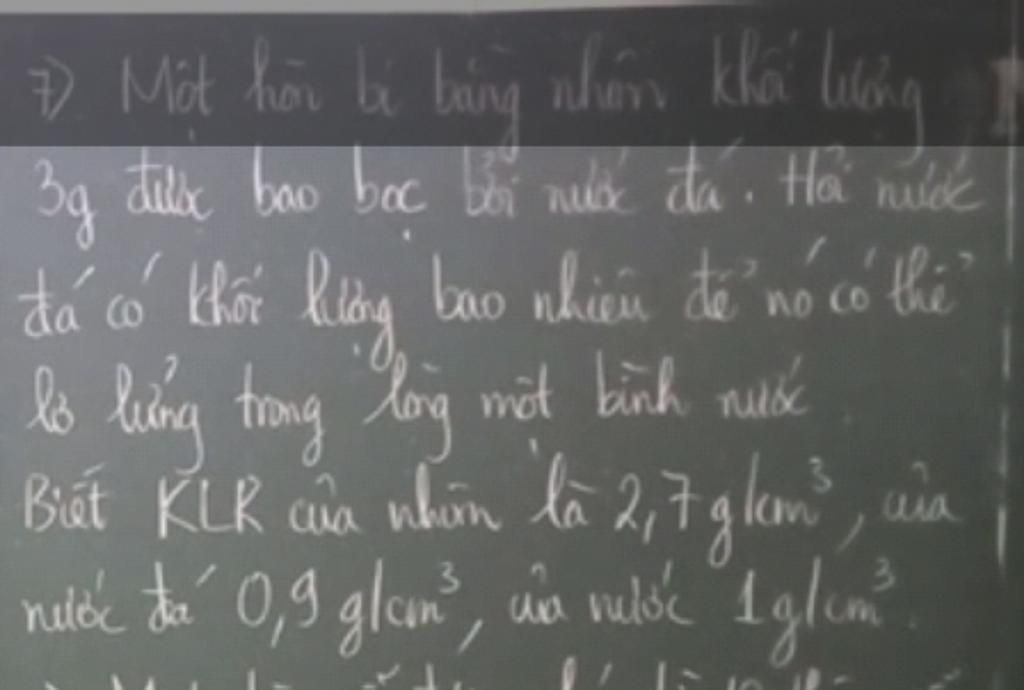 7) Một hòn bi bằng nhôm khối lượng
3g được bao bọc bởi nước đá. Hỏi nước
đá có khối lượng bao nhiêu để nó có thể
lơ lửng trong lòng một bình nước.
Biết KLR của nhôm là 2,7 g/cm³, của
nước đá 0,9 g/cm³, của nước 1g/cm³.